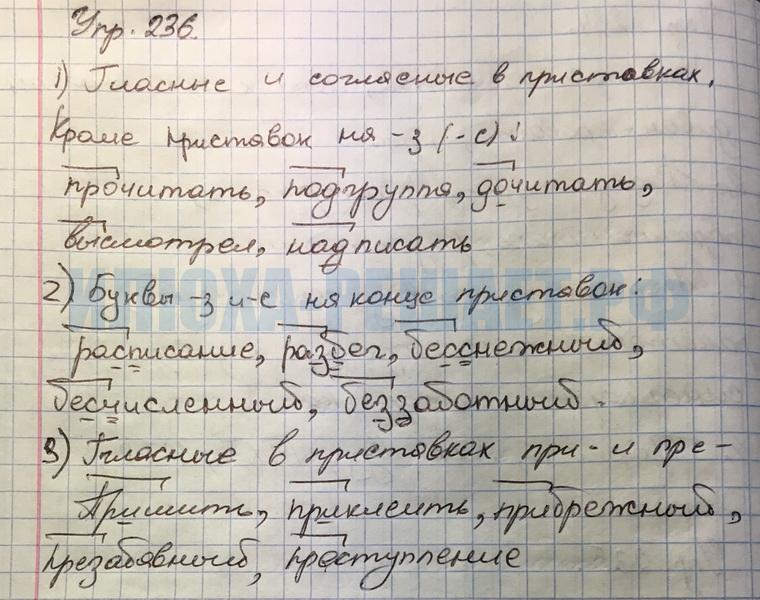 Упр. 236.
1) Гласные и согласные в приставках,
кроме приставок на -з (-с):
прочитать, подгруппа, дочитать,
высмотрел, надписать
ИЛЮХА-РЕШАЕТ.РФ
2) Буквы -з и -с на конце приставок:
расписание, разбег, бесснежный,
бесчисленный, беззаботный.
3) Гласные в приставках при- и пре-
Пришить, приклеить, прибрежный,
презабавный, преступление